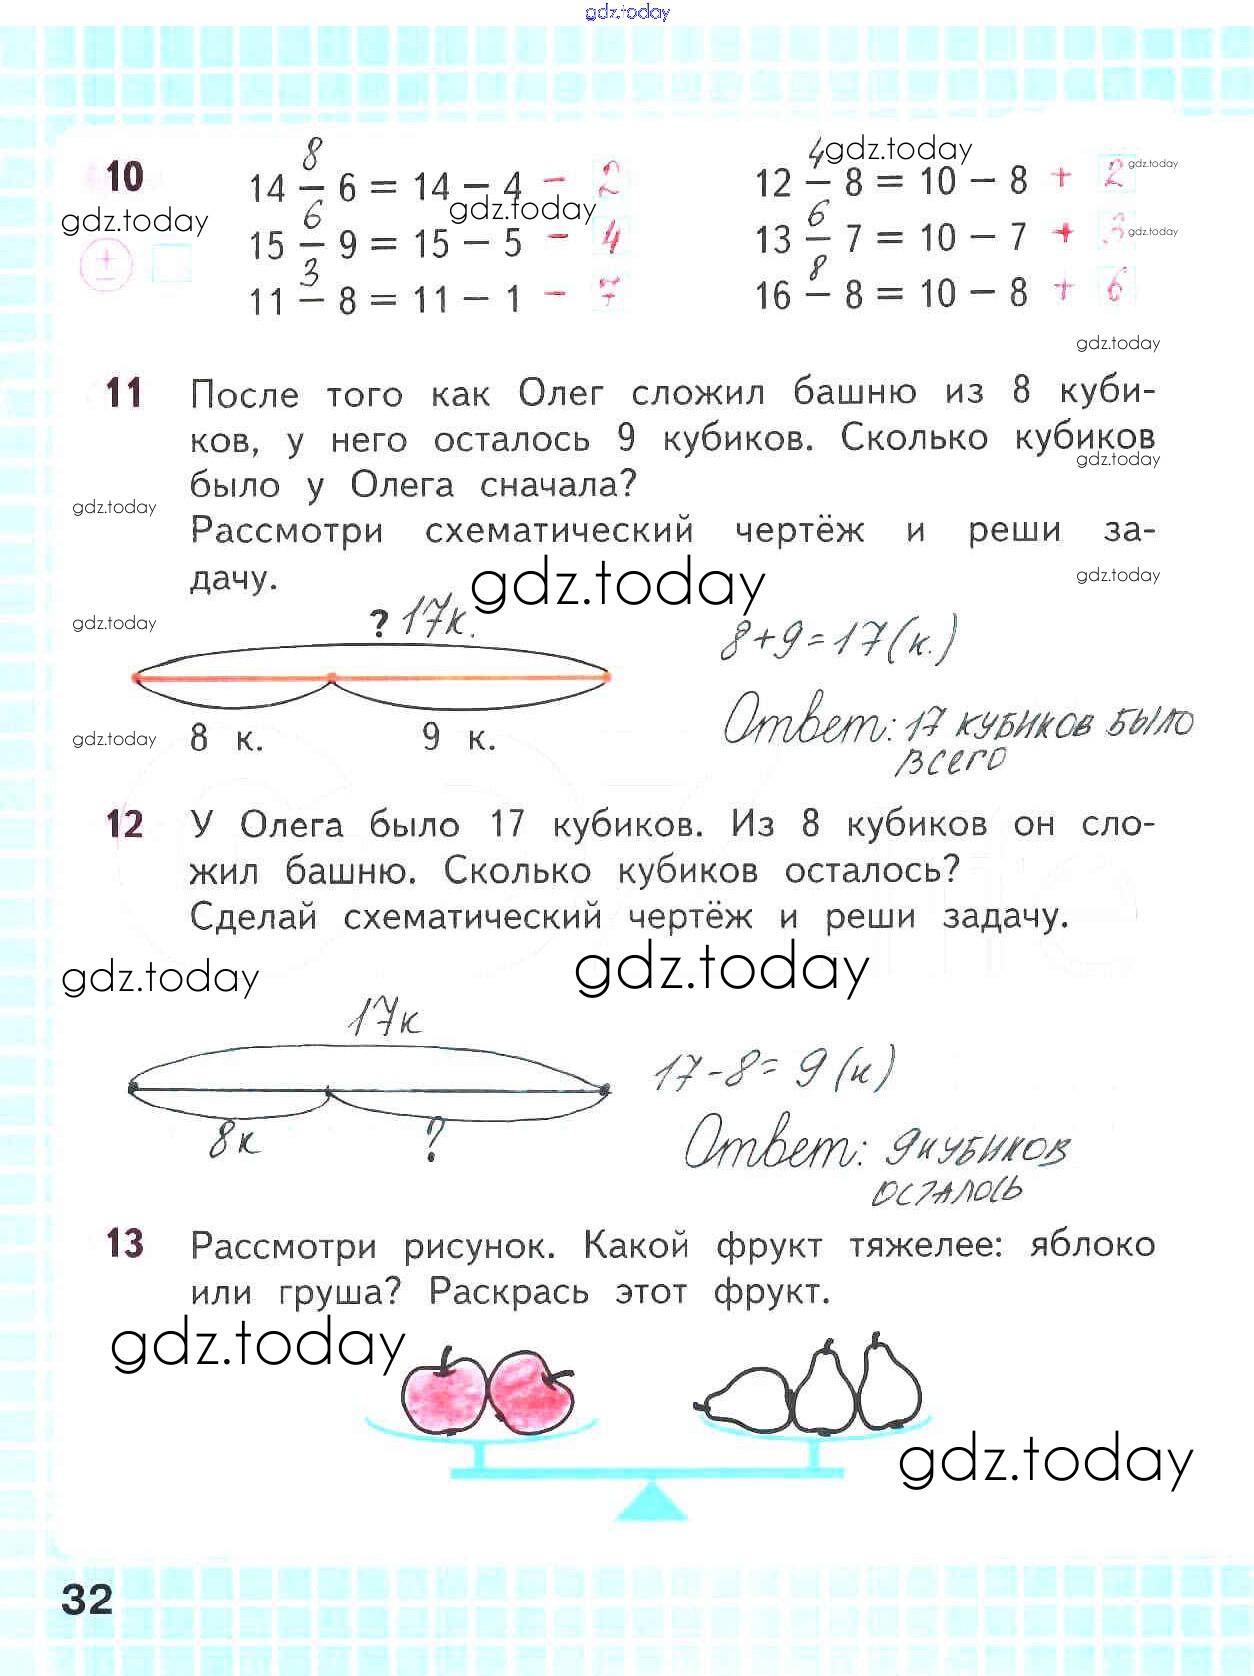 gdz.today
10
8
14 − 6 = 14 − 4 − 2
6
15 − 9 = 15 − 5 − 4
3
11 − 8 = 11 − 1 − 7
4
12 − 8 = 10 − 8 + 2
6
13 − 7 = 10 − 7 + 3
8
16 − 8 = 10 − 8 + 6
gdz.today
gdz.today
gdz.today
gdz.today
gdz.today
±
gdz.today
11 После того как Олег сложил башню из 8 куби-
ков, у него осталось 9 кубиков. Сколько кубиков
gdz.today
было у Олега сначала?
gdz.today
Рассмотри схематический чертёж и реши за-
дачу.
gdz.today
gdz.today
gdz.today
? 17к.
8+9=17(к.)
8 к.
9 к.
gdz.today
Ответ: 17 кубиков было
всего
12 У Олега было 17 кубиков. Из 8 кубиков он сло-
жил башню. Сколько кубиков осталось?
Сделай схематический чертёж и реши задачу.
gdz.today
gdz.today
17к
17-8=9(к)
8к
?
Ответ: 9 кубиков
осталось
13 Рассмотри рисунок. Какой фрукт тяжелее: яблоко
или груша? Раскрась этот фрукт.
gdz.today
gdz.today
32